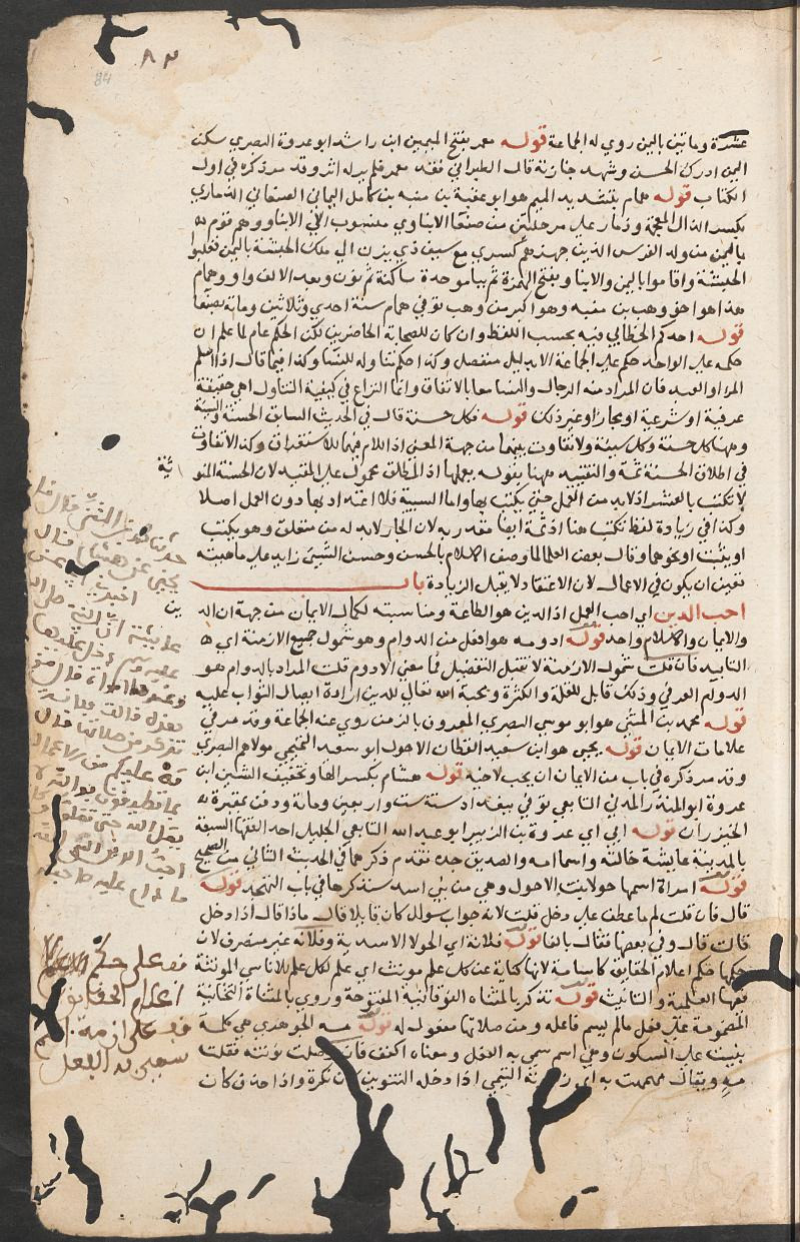 ٨٣
84
عشرة ومائتين باليمن روي له الجماعة قوله معمر بفتح الميمين ابن راشد ابو عروة البصري سكن
اليمن ادرك الحسن وشهد جنازته قال الطبراني فقد معمر فلم ير له اثر وقد مر ذكره في اول
الكتاب قوله همام بتشديد الميم هو ابو عقبة بن منبه بن كامل اليماني الصنعاني الذماري
بكسر الذال المعجمة وذمار على مرحلتين من صنعا الابناوي منسوب الي الابنا وهم قوم
باليمن من ولد الفرس الذين جهزهم كسري مع سيف ذي يزن الي ملك الحبشة باليمن فغلبوا
الحبشة واقاموا باليمن والابنا وبفتح الهمزة ثم بباء موحدة ساكنة ثم نون وبعد الالف واو وهمام
هذا هو اخو وهب بن منبه وهو اكبر من وهب توفي همام سنة احدي وثلاثين ومائة بصنعا
قوله احدكم الخطابي فيه بحسب اللفظ وان كان للصحابة الحاضرين لكن الحكم عام لما علم ان
حكمه علي الواحد حكم علي الجماعة الا بدليل منفصل وكذا حكم تناوله للنسا وكذا فيما قال اذا اسلم
المرا او العبد فان المراد منه الرجال والنسا معا بالاتفاق وانما النزاع في كيفية التناول اهي حقيقة
عرفية او شرعية او مجازا وغير ذلك قوله فكل حسنة قال في الحديث السابق الحسنة والسيئة
وههنا كل حسنة وكل سيئة ولا تفاوت بينهما من جهة المعني اذ اللام فيهما للاستغراق وكذا لا تفاوت
في اطلاق الحسنة ثمة والتقييد ههنا بقوله يعملها اذ المطلق محمول علي المقيد لان الحسنة المنو
ية
لا تكتب بالعشر اذ لابد من العمل حتي يكتب بها واما السيئة فلا اعتداد بها دون العمل اصلا
وكذا في زيادة لفظ تكتب هنا اذ ثمة ايضا مقدر به لان الجار لابد له من متعلق وهو يكتب
او يثبت او نحوهما وقال بعض العلما لما وصف الاسلام بالحسن وحسن الشي زايد علي ماهيته
تعين ان يكون في الاعمال لان الاعتقاد لا يقبل الزيادة باب
احب الدين اي احب العمل اذ الدين هو الطاعة ومناسبته لكمال الايمان من جهة ان الد
ين
والايمان والاسلام واحد قوله ادومه هو افعل من الدوام وهو شمول جميع الازمنة اي
التابيد فان قلت شمول الازمنة لا تقبل التفضيل فما معني الادوم قلت المراد بالدوام هو
الدوام العرفي وذلك قابل للقلة والكثرة ومحبة الله تعالي للدين ارادة ايصال الثواب عليه
قوله محمد بن المثني هو ابو موسي البصري المعروف بالزمن روي عنه الجماعة وقد مر في
علامات الايمان قوله يحيي هو ابن سعيد القطان الاحول ابو سعيد التميمي مولاهم البصري
وقد مر ذكره في باب من الايمان ان يحب لاخيه قوله هشام بكسر الها وتخفيف الشين ابن
عروة ابو المنذر المدني التابعي توفي ببغداد سنة ست واربعين ومائة ودفن بمقبرة
الخيزران قوله ابي اي عروة بن الزبير ابو عبد الله التابعي الجليل احد الفقها السبعة
بالمدينة عايشة خالته واسما امه والصديق جده تقدم ذكرهما في الحديث الثاني من الصحيح
قوله امراة اسمها حولا بنت الاحول وهي من بني اسد سنذكرها في باب التهجد قوله
قال فان قلت لم ما عطف علي دخل قلت لانه جواب سوال كان قايلا قال ماذا قال اذ ادخل
قالت قال وفي بعضها فقال بالفا قوله فلانة اي الحولا الاسدية وفلانة غير منصرف لان
حكمها حكم اعلام الحقايق كاسامة لانها كناية عن كل علم مونث اي علم لكل علم للاناسي المونثة
ففيها العلمية والتانيث قوله تذكر بالمثناه الفوقانية المفتوحة وروي بالمثناة التحتانية
المضمومة علي فعل ما لم يسم فاعله ومن صلاتها مفعول له قوله مه الجوهري هي كلمة
بنيت علي السكون وهي اسم سمي به الفعل ومعناه اكفف فان وصلت نونته فقلت
مه ويقال مهمهت به اي زجرته التيمي اذا دخله التنوين كان نكرة واذا حذف كان
حدثنا محمد بن المثني قال حدثنا
يحيي عن هشام قال
اخبرني ابي عن
عايشة ان النبي صلى الله
عليه وسلم دخل عليها
وعندها امراة قال من
هذه قالت فلانة
تذكر من صلاتها قال
مه عليكم من الاعمال
بما تطيقون فوالله لا
يمل الله حتي تملوا وكان
احب الدين اليه
ما دام عليه صاحبه